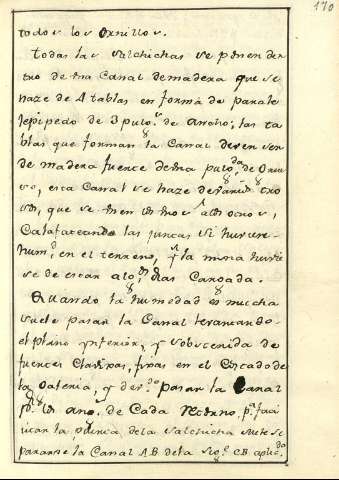 170
todos los Ornillos.
Todas las Salchichas se ponen den
tro de una Canal de madera que se
haze de 4 tablas en forma de parale
lepipedo de 3 pulg.s de Ancho; las ta
blas que forman la Canal deven ser
de madera fuerte de una pulg.da de Grue
so, esta Canal se haze de varios tro
sos, que se unen los unos a los otros,
Calafateando las juntas si huviere
hum.d en el terreno, y si la mina huvie
se de estar alg.os dias Cargada.
Quando la humedad es mucha
suele pasar la Canal levantando
el plano ynferior, y sobstenida de
fuertes Clavijas, fixas en el Costado de
la Galeria, y der.o pasar la Canal
p.r los ang.s de Cada retorno, p.a faci
litar la de la Salchicha suele se
pararse la Canal A.B. de la sig.te C.B.